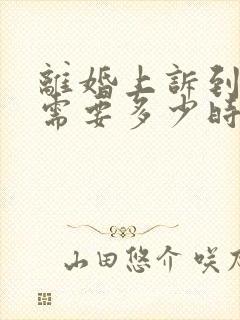 離婚上訴到
需要多少時
山田悠介 咲